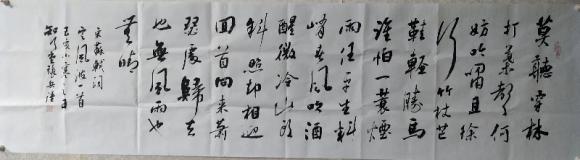 莫聽穿林
打葉聲何
妨吟嘯且徐
行竹杖芒
鞋輕勝馬
誰怕一蓑煙
雨任平生料
峭春風吹酒
醒微冷山頭
斜照却相迎
回首向來蕭
瑟處歸去
也無風雨也
無晴
宋蘇軾詞
定風波一首